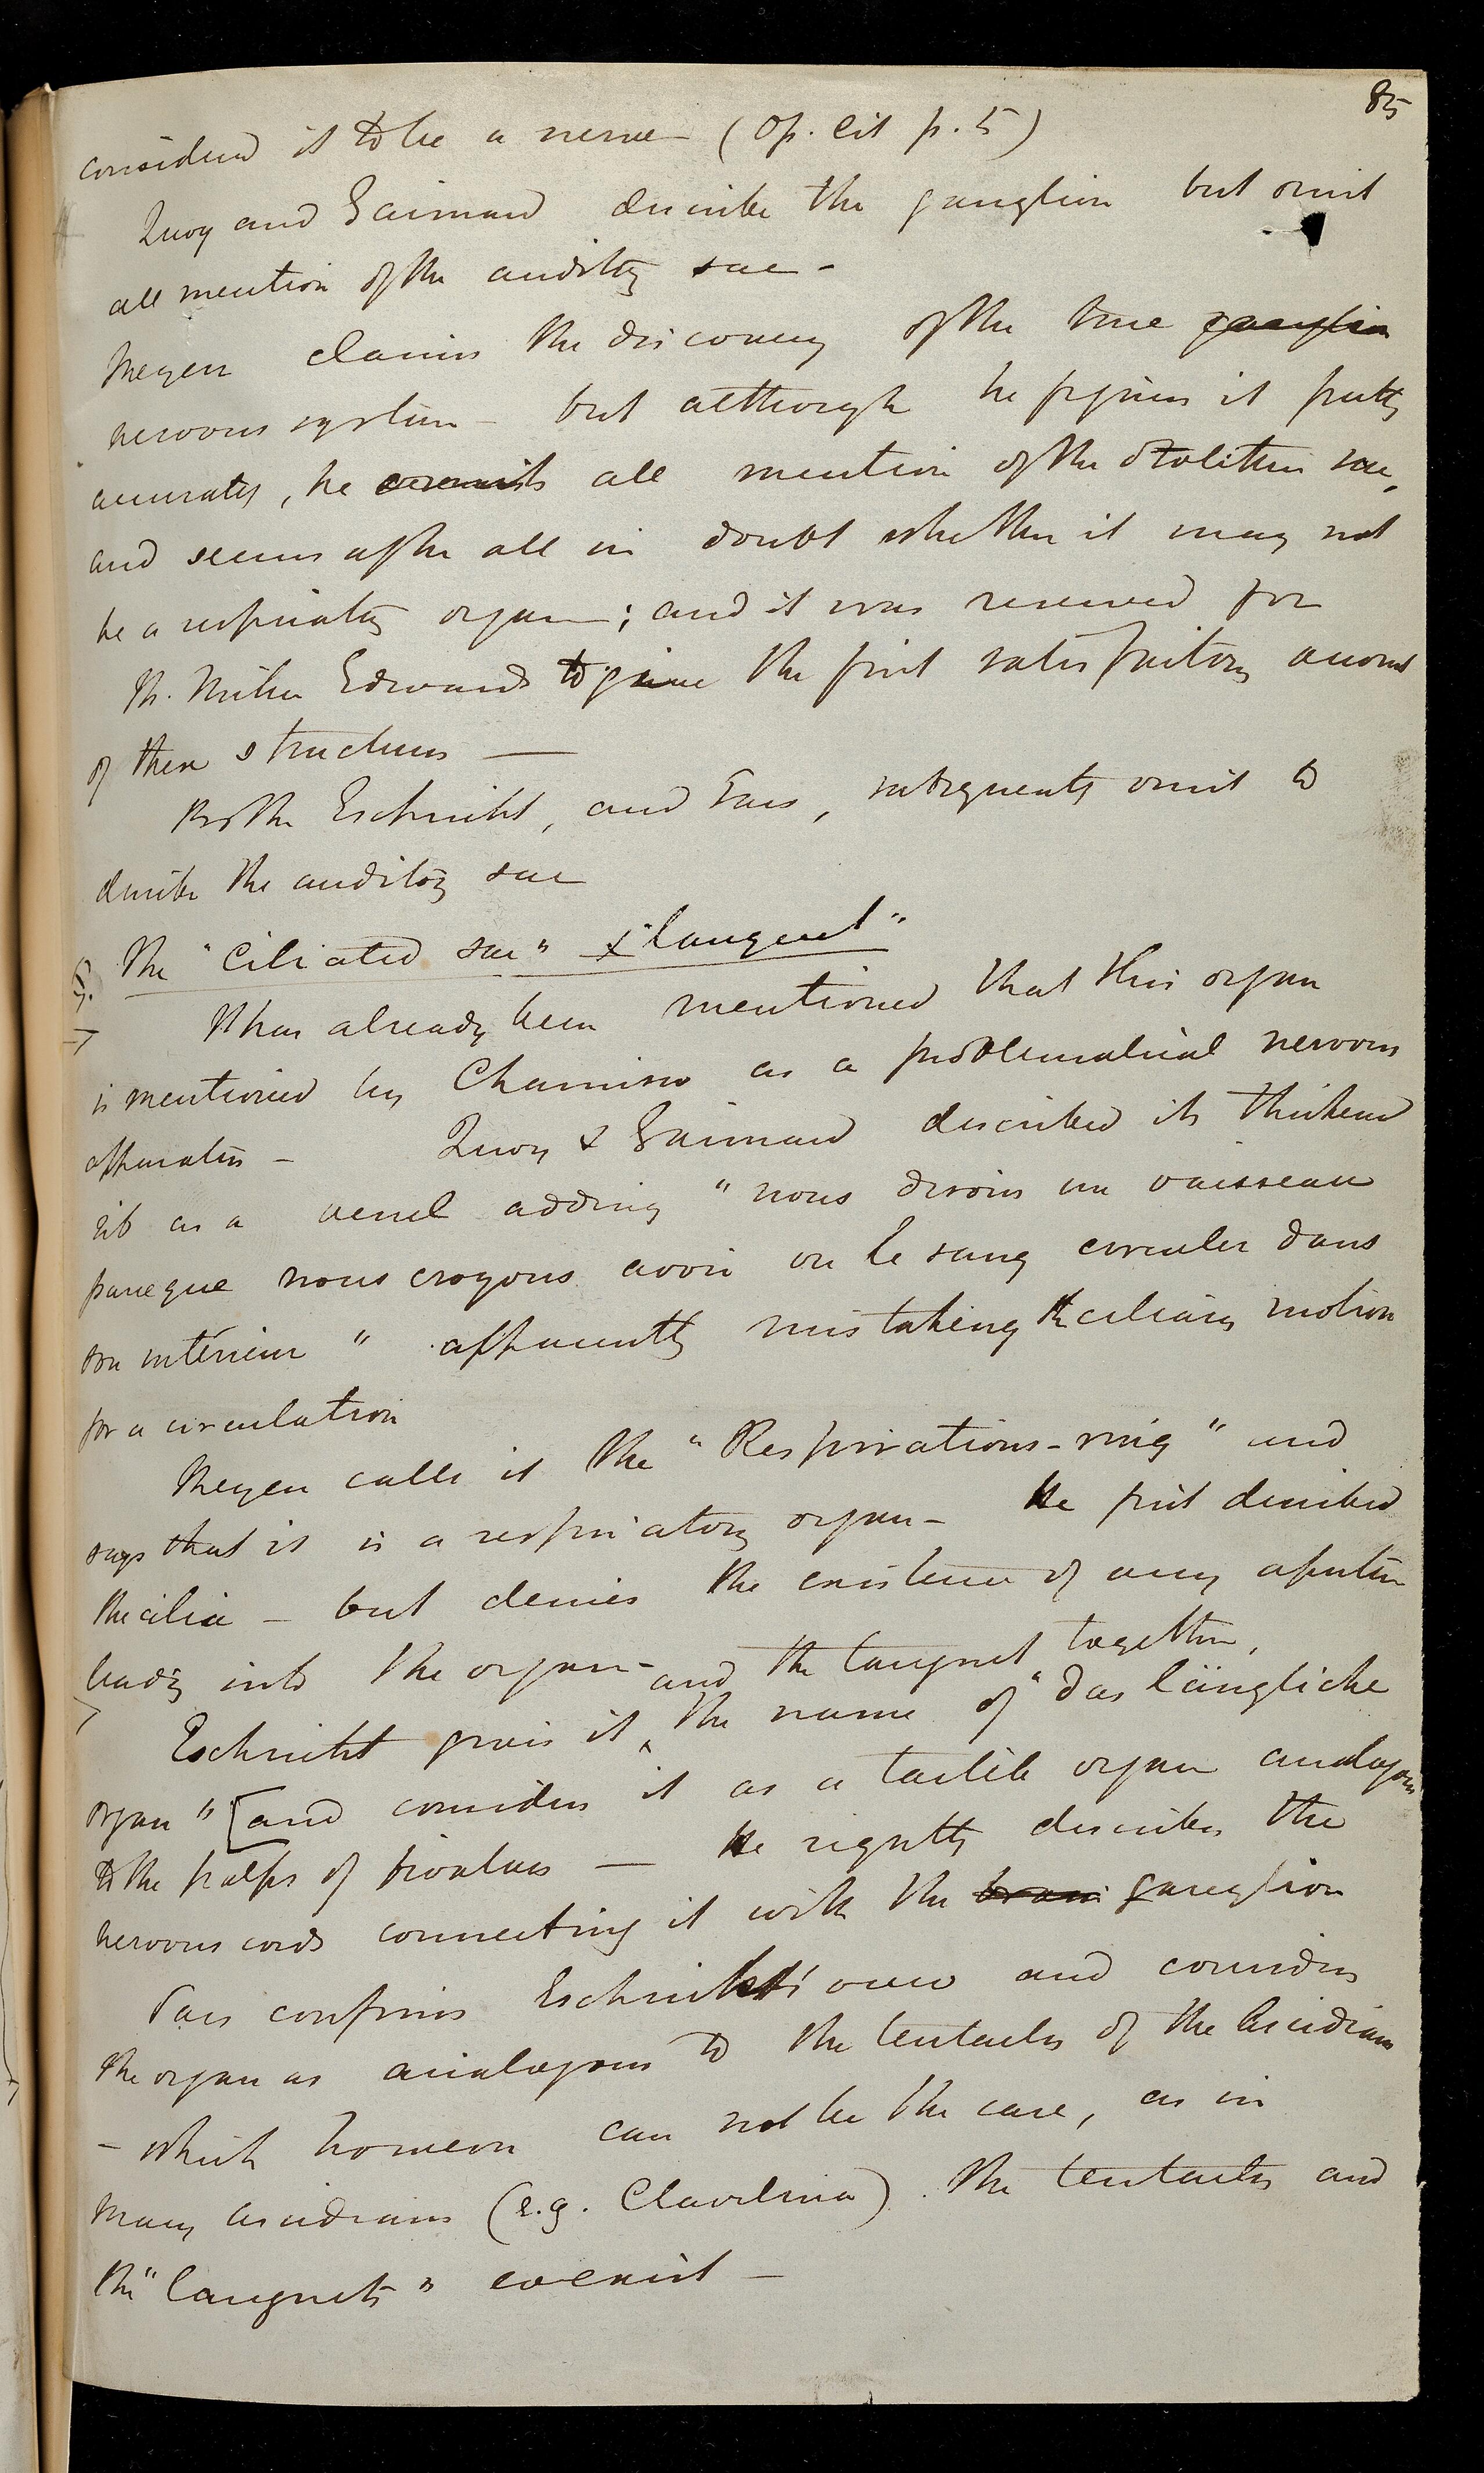 85
considered it to be a nerve (Op. Cit p. 5)
Quoy and Gaimard describe the ganglion but omit
all mention of the auditory sac -
Meyen claims the discovery of the true ganglion
nervous system - but although he figures it pretty
accurately, he omits all mention of the Otolithic sac,
and seems after all in doubt whether it may not
be a respiratory organ; and it was reserved for
M. Milne Edwards to give the first satisfactory account
of these structures —
Both Eschricht, and Sars, subsequently omit to
describe the auditory sac
The "Ciliated sac" & "languet"
It has already been mentioned that this organ
is mentioned by Chamisso as a problematical nervous
apparatus - Quoy & Gaimard described its thickened
rib as a vessel adding "nous disons un vaisseau
parceque nous croyons avoir vu le sang circuler dans
son intérieur" apparently mistaking the ciliary motion
for a circulation
Meyen calls it the "Respirations-ring" and
says that it is a respiratory organ - He first described
the cilia - but denies the existence of any aperture
leading into the organ -
and the languet together,
Eschricht gives it the name of "das längliche
organ" [and considers it as a tactile organ analogous
to the palps of bivalves — He rightly describes the
nervous cords connecting it with the brain ganglion
Sars confirms Eschricht's view and considers
the organ as analogous to the tentacles of the Ascidians
- which however can not be the case, as in
many Ascidians (e.g. Clavelina) the tentacles and
the "languets" coexist -